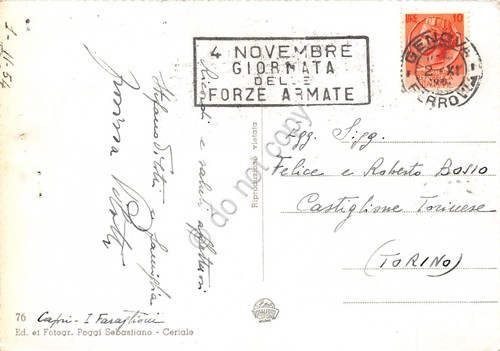 1-11-54
Ricordi e saluti affettuosi
Stefano
e famiglia
LIRE 10
GENOVA
2 XI
FERROVIA
4 NOVEMBRE
GIORNATA
DELLE
FORZE ARMATE
Riproduzione vietata
Egg. Sigg.
Felice e Roberto BOSIO
Castiglione Torinese
(TORINO)
do not copy
76 Capri - I Faraglioni
Ed. et Fotogr. Poggi Sebastiano - Ceriale